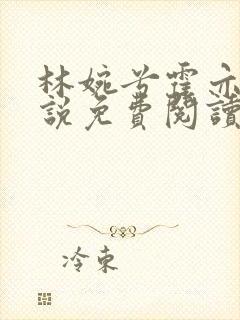 林婉兮霍亦
說免費閱讀
冷東